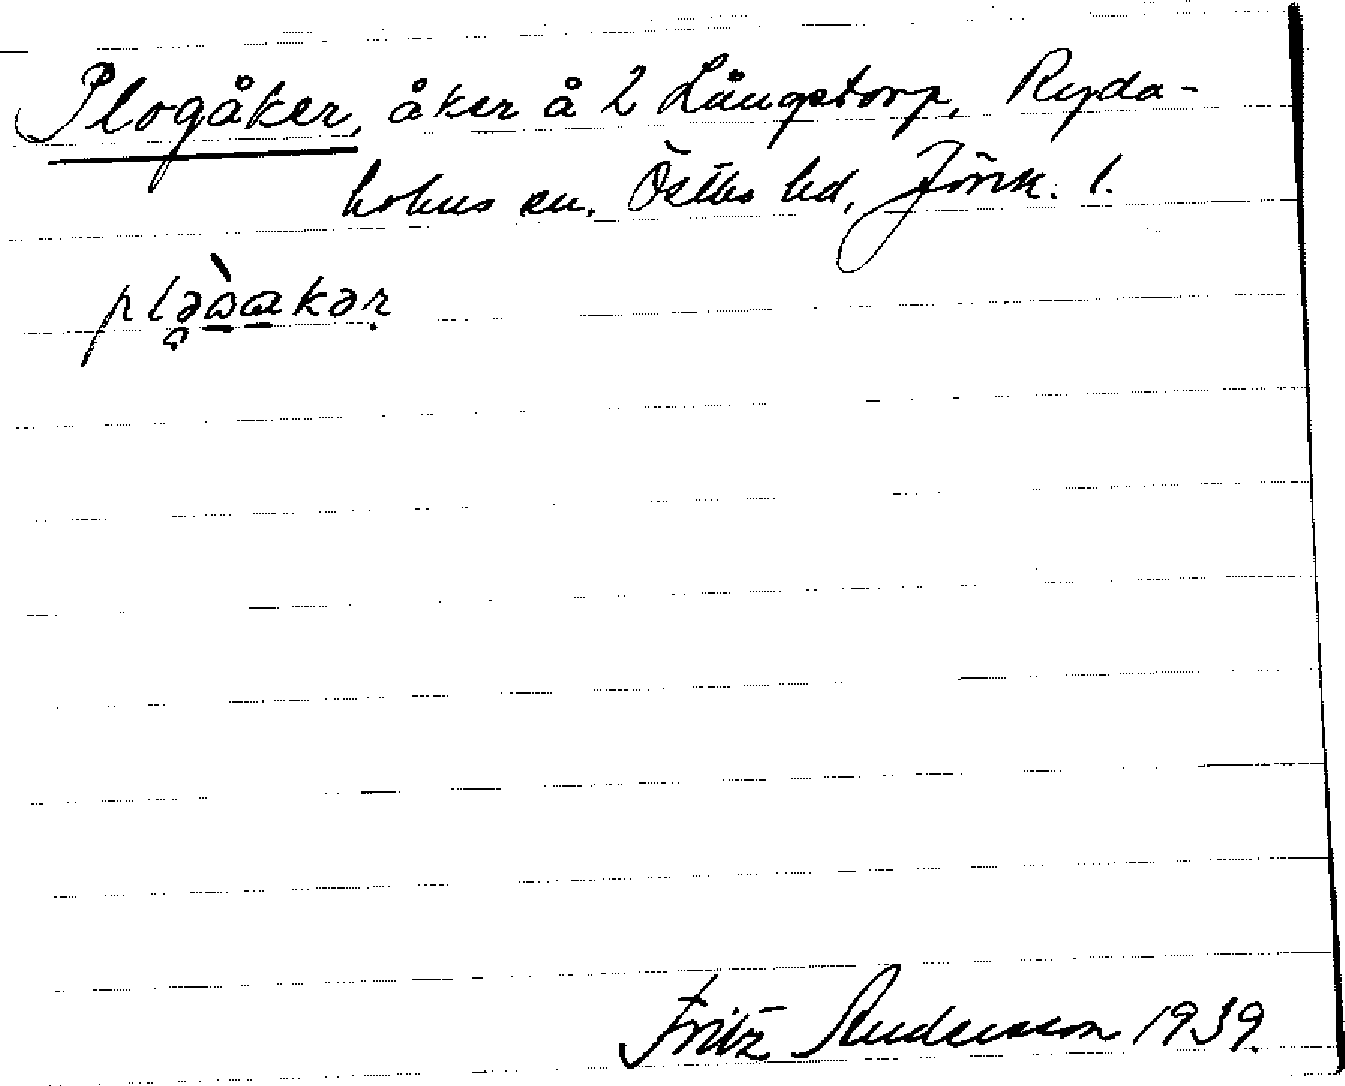 Plogåker, åker å 2 Långstorp, Ryda-
holms sn, Östbo hd, Jönk. l.
Fritz Andersson 1939.